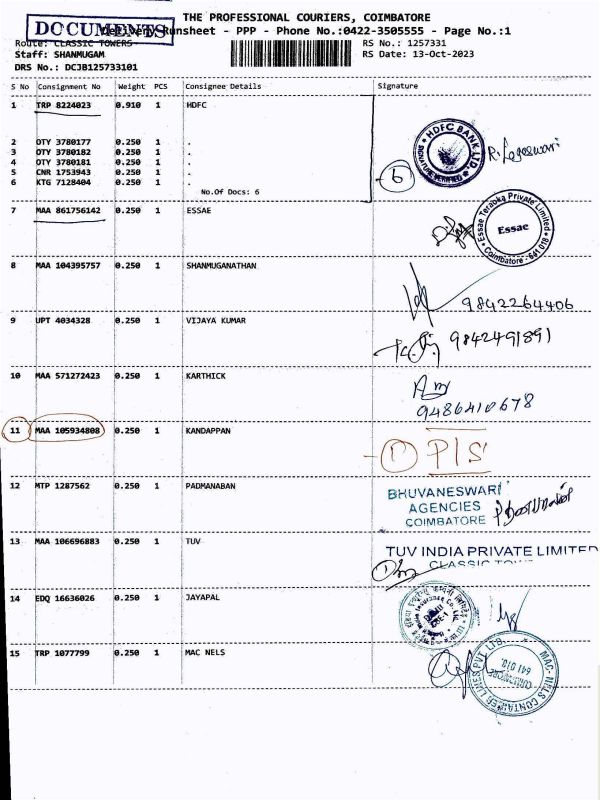 THE PROFESSIONAL COURIERS, COIMBATORE
DOCUMENTS
Delivery Runsheet - PPP - Phone No.:0422-3505555 - Page No.:1
Route: CLASSIC TOWERS
RS No.: 1257331
Staff: SHANMUGAM
RS Date: 13-Oct-2023
DRS No.: DCJB125733101
S No Consignment No Weight PCS Consignee Details Signature
1 TRP 8224023 0.910 1 HDFC
HDFC BANK LTD.
SIGNATURE VERIFIED
2 OTY 3780177 0.250 1 .
3 OTY 3780182 0.250 1 .
4 OTY 3780181 0.250 1 .
5 CNR 1753943 0.250 1 .
6 KTG 7128404 0.250 1 .
6
No.Of Docs: 6
7 MAA 861756142 0.250 1 ESSAE
Essae Teraoka Private Limited
Essae
Coimbatore - 641 018
8 MAA 104395757 0.250 1 SHANMUGANATHAN
9842264406
9 UPT 4034328 0.250 1 VIJAYA KUMAR
9842491891
10 MAA 571272423 0.250 1 KARTHICK
9486410678
11 MAA 105934808 0.250 1 KANDAPPAN
P/S
12 MTP 1287562 0.250 1 PADMANABAN
BHUVANESWARI
AGENCIES
COIMBATORE
13 MAA 106696883 0.250 1 TUV
TUV INDIA PRIVATE LIMITED
CLASSIC
14 EDQ 16636026 0.250 1 JAYAPAL
15 TRP 1077799 0.250 1 MAC NELS
MAC-NELS CONTAINER LINES PVT LTD.
COIMBATORE
641 018.